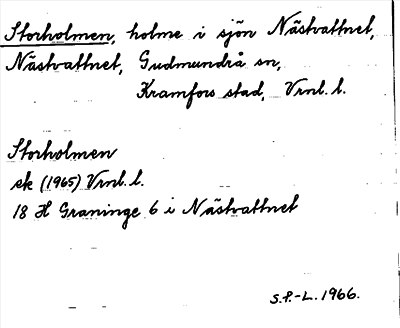 Storholmen, holme i sjön Nästvattnet,
Nästvattnet, Gudmundrå sn,
Kramfors stad, Vrnl. l.
Storholmen
ek (1965) Vrnl. l.
18 H Graninge 6 i Nästvattnet
S.P.-L. 1966.